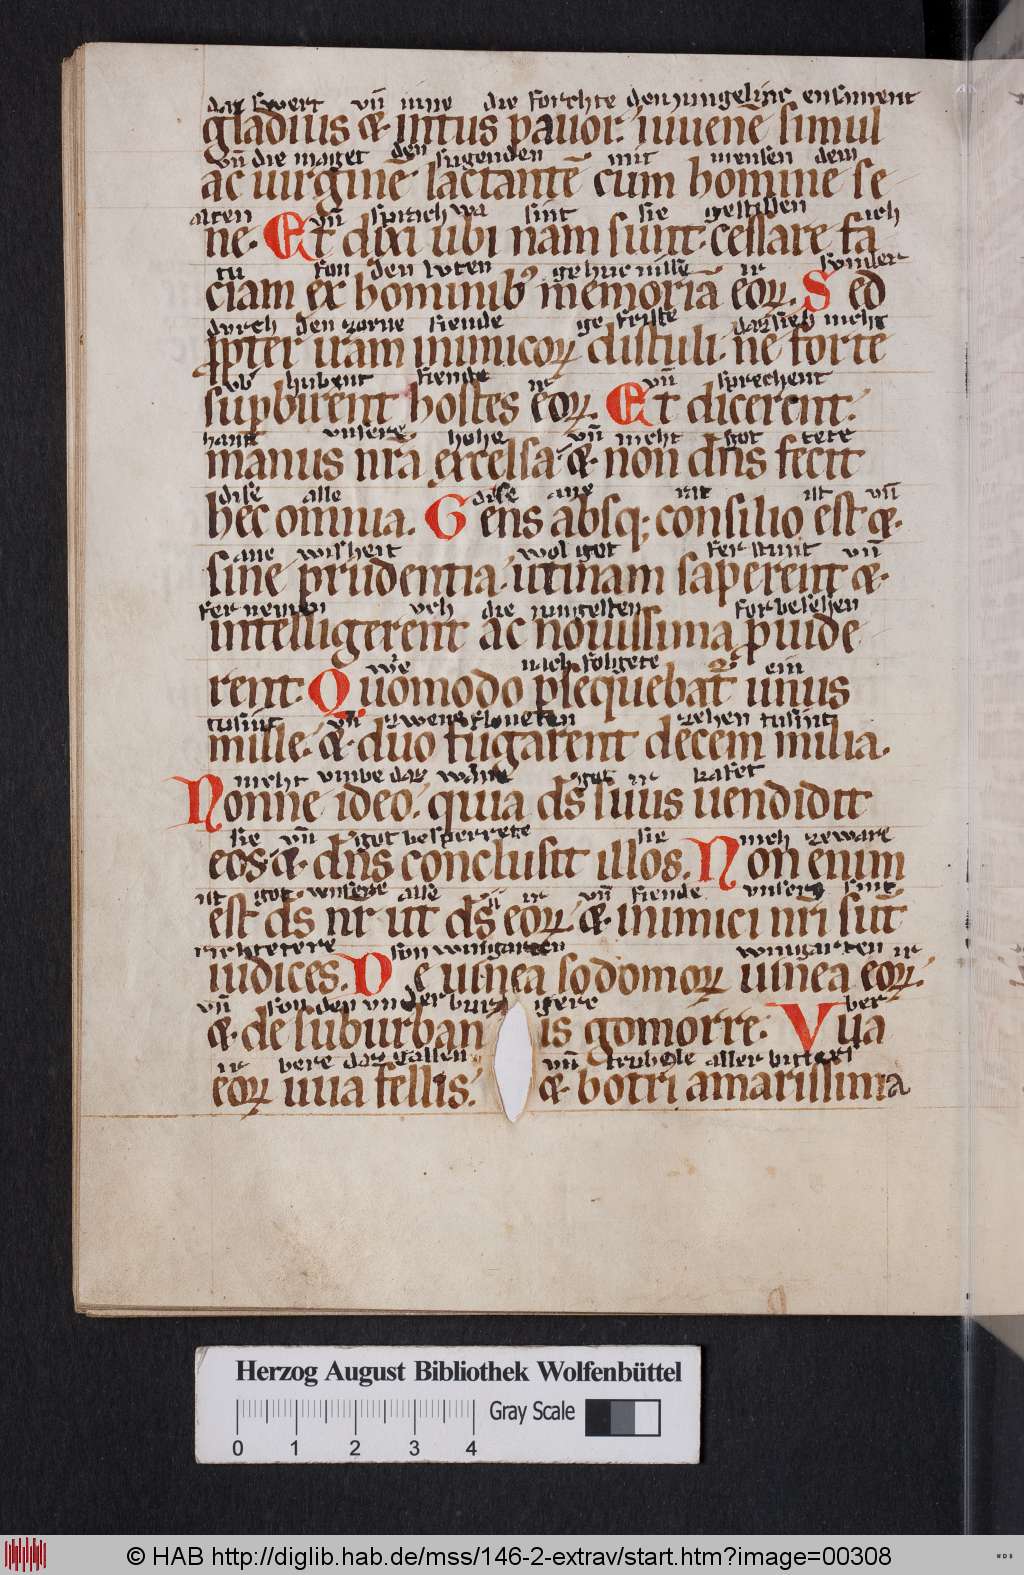 daz swert vn̄ inne die forchte den iungelinc ensament
gladius & intus pauor. iuuenē simul
vn̄ die maget den sugenden mit mensen dem
ac uirginē. lactantē cum homine se
alten vn̄ sprich wa sint sie gestillen ich
ne. Et dixi ubi nam sunt. cessare fa
tu fon den luten gehucnisse ir sunder
ciam ex hominibꝰ memoriā eoꝝ. Sed
durch den zorne fiende ge friste daz sieh nicht
ꝓpter iram inimicoꝝ distuli. ne forte
hubent fiende ir vn̄ sprechent
supbirent hostes eoꝝ. Et dicerent.
hant vnsere hohe vn̄ nicht got tete
manus nr̄a excelsa. & non dn̄s fecit
dise alle dise ane rat ist vn̄
hec omnia. Gens absq; consilio est &.
ane wisheit wol get fer stunt vn̄
sine prudentia. utinam saperent &.
fer nemen vch die iungesten for besehen
intelligerent ac nouissima ꝓuide
wie nach folgete ein
rent. Quomodo ꝑsequebat᷑ unus
tusint vn̄ zwene floucten zehen tusint
mille. & duo fugarent decem milia.
nicht vmbe daz wāne got ir
Nonne ideo. quia ds̄ suus uendidit
sie vn̄ got besperrete sie nich zeware
eos. & dn̄s conclusit illos. Non enim
ist got vnsere alse ir vn̄ fiende vnsere sint
est ds̄ nr̄ ut ds̄ eoꝝ. & inimici nr̄i sūt
richtetere fon wingarten wingarten ir
iudices. De uinea sodomoꝝ uinea eoꝝ.
vn̄ fon den vnder burgere ber
&. de suburbanis gomorre. Vua
ir bere daz gallen vn̄ trubele aller bitterst
eoꝝ uua fellis. & botri amarissima
Herzog August Bibliothek Wolfenbüttel
Gray Scale
0 1 2 3 4
© HAB http://diglib.hab.de/mss/146-2-extrav/start.htm?image=00308